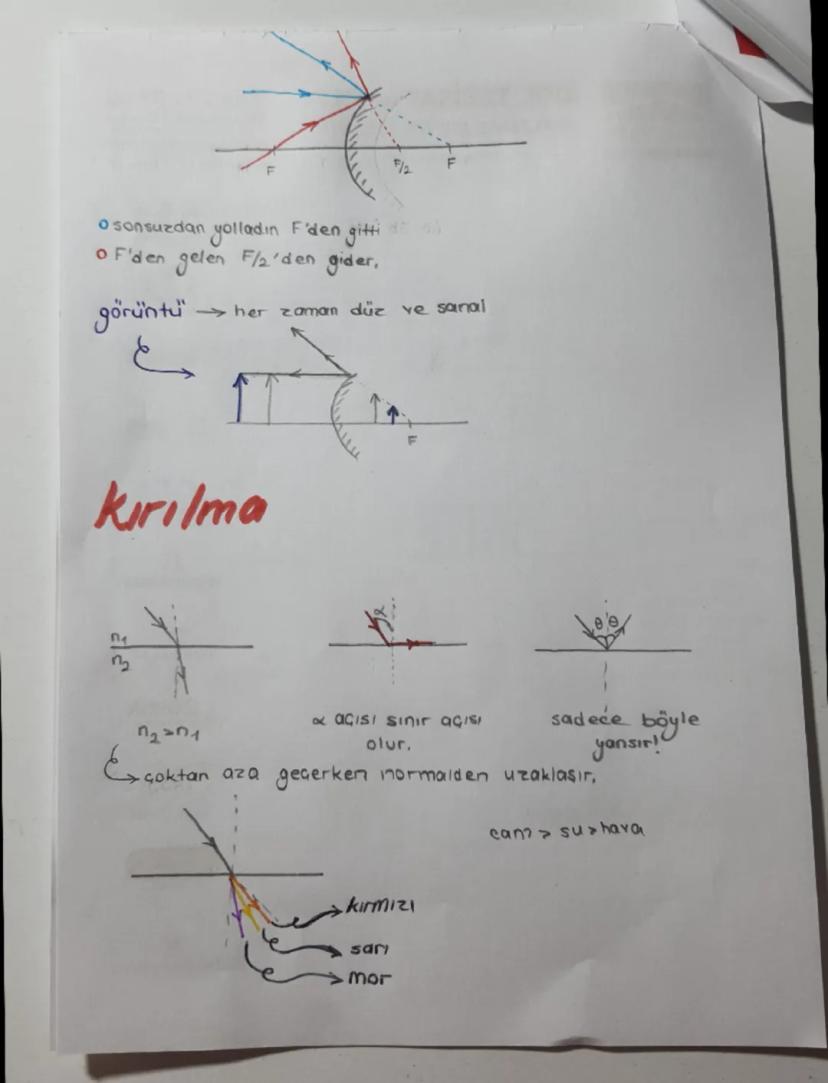 F F/2 F
sonsuzdan yolladın F'den gitti
F'den gelen F/2'den gider.
görüntü → her zaman düz ve sanal
F
kırılma
n1
n2
α
θ θ
n2>n1
α açısı sınır açısı
olur.
sadece böyle
yansır!
çoktan aza geçerken normalden uzaklaşır.
cam > su > hava
kırmızı
sarı
mor